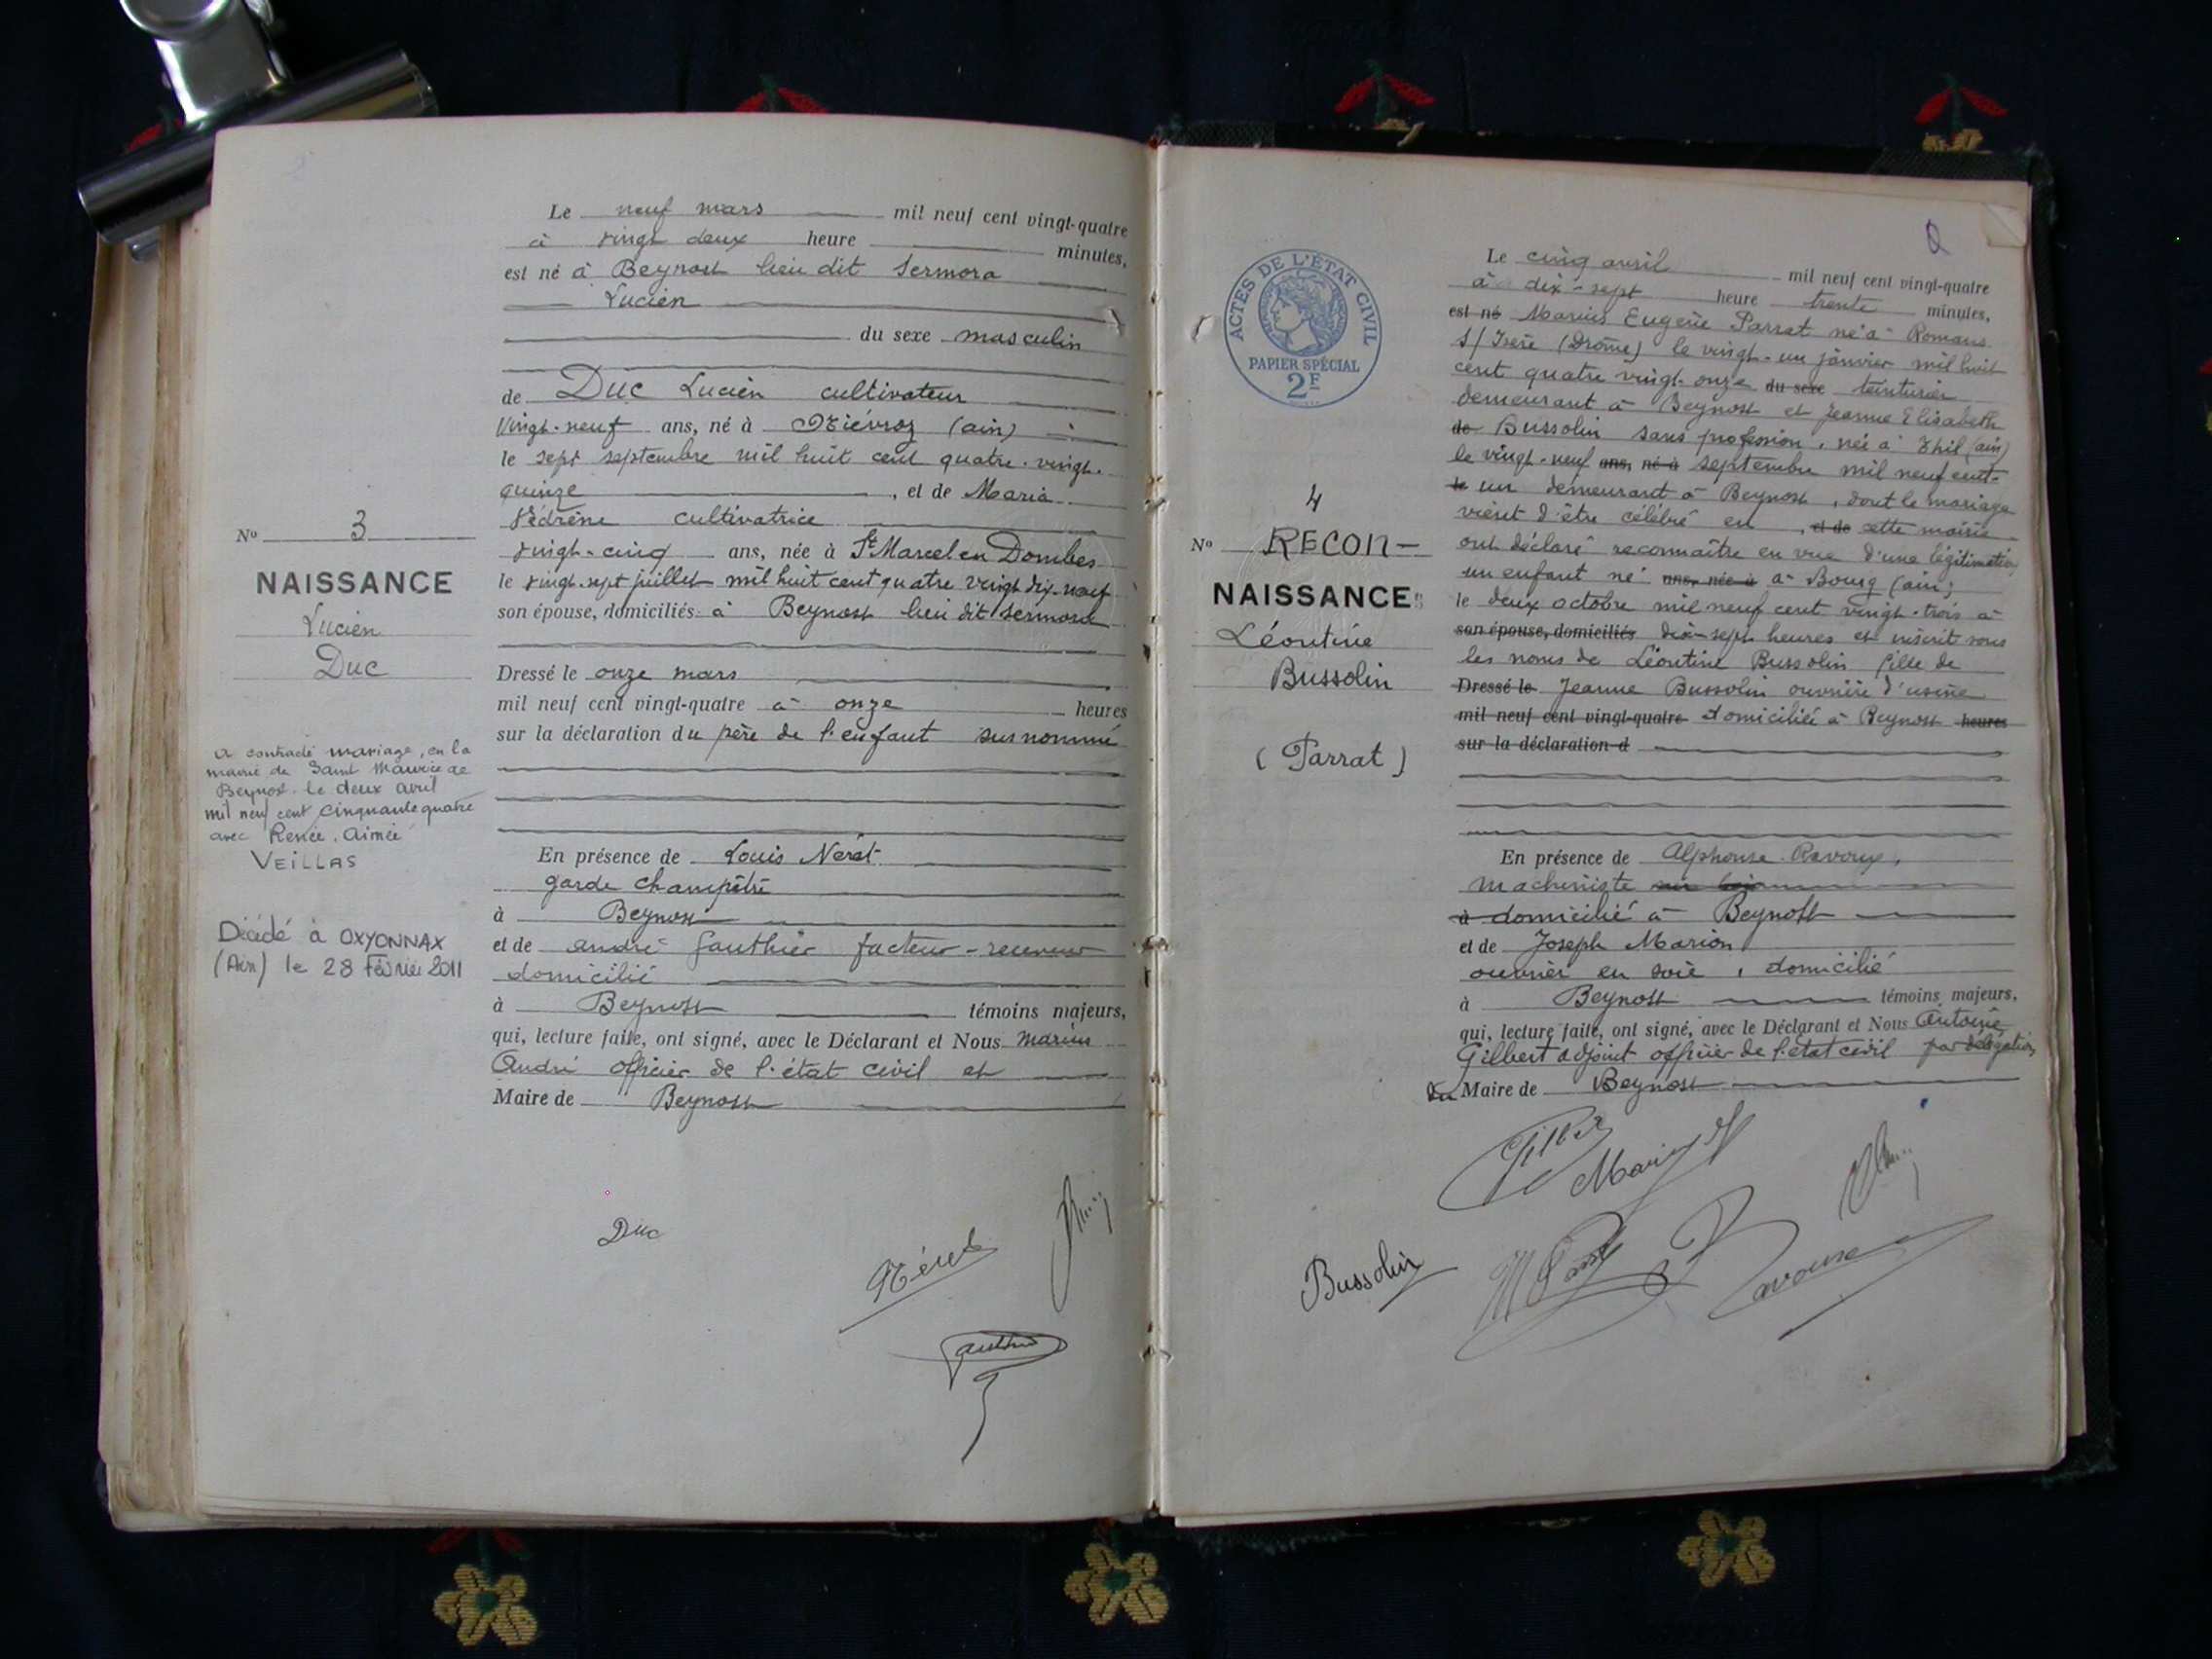 Le neuf mars mil neuf cent vingt-quatre
à vingt deux heure minutes,
est né à Beynost lieu dit Sermora
Lucien
du sexe masculin
de Duc Lucien cultivateur
vingt-neuf ans, né à Niévroz (ain)
le sept septembre mil huit cent quatre-vingt-
quinze , et de Maria
Védrène cultivatrice
vingt-cinq ans, née à St Marcel en Dombes
le vingt-sept juillet mil huit cent quatre vingt dix-neuf
son épouse, domiciliés à Beynost lieu dit Sermora
Dressé le onze mars
mil neuf cent vingt-quatre à onze heures
sur la déclaration du père de l'enfant susnommé
En présence de Louis Néret
garde champêtre
à Beynost
et de andré Gauthier facteur-receveur
domicilié
à Beynost témoins majeurs,
qui, lecture faite, ont signé, avec le Déclarant et Nous Marius
André officier de l'état civil et
Maire de Beynost
Duc
Néret
Gauthier
No 3
NAISSANCE
Lucien
Duc
a contracté mariage, en la
mairie de Saint Maurice de
Beynost le deux avril
mil neuf cent cinquante quatre
avec Renée, Aimée
VEILLAS
Décédé à OXYONNAX
(Ain) le 28 Février 2011
ACTES DE L'ÉTAT CIVIL
PAPIER SPÉCIAL
2F
4
No RECON-
NAISSANCE
Léontine
Bussolin
(Parrat)
Le cinq avril mil neuf cent vingt-quatre
à dix-sept heure trente minutes,
est né Marius Eugène Parrat né à Romans
s/ Isère (Drôme) le vingt-un janvier mil huit
cent quatre vingt-onze du sexe teinturier
demeurant à Beynost et Jeanne Elisabeth
de Bussolin sans profession, née à Thil (ain)
le vingt-neuf ans, né à septembre mil neuf cent-
le un demeurant à Beynost, dont le mariage
vient d'être célébré en , et de cette mairie
ont déclaré reconnaître en vue d'une légitimation
un enfant né ans, née à à Bourg (ain)
le deux octobre mil neuf cent vingt-trois à
son épouse, domiciliés dix-sept heures et inscrit sous
les noms de Léontine Bussolin fille de
Dressé le Jeanne Bussolin ouvrière d'usine
mil neuf cent vingt-quatre domiciliée à Beynost heures
sur la déclaration d
En présence de Alphonse Ravoux,
machiniste
à domicilié à Beynost
et de Joseph Marion
ouvrier en soie, domicilié
à Beynost témoins majeurs,
qui, lecture faite, ont signé, avec le Déclarant et Nous Antoine
Gilbert adjoint officier de l'état civil par délégation
du Maire de Beynost
Gilbert
Marion
Bussolin
M Parrat
Ravoux